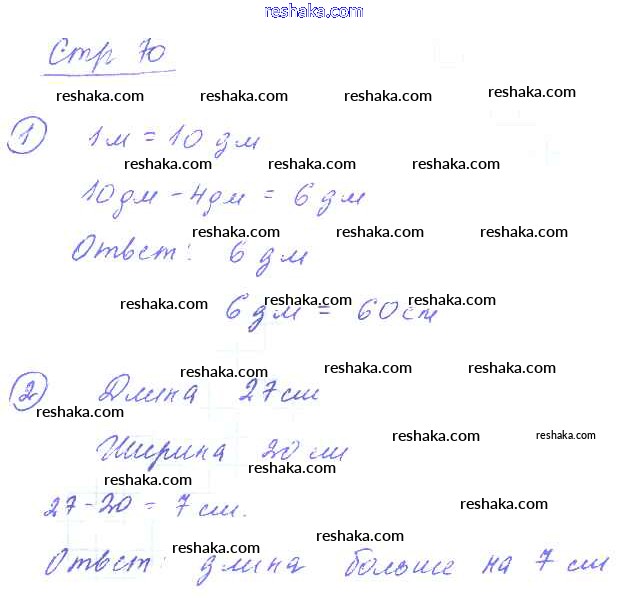 reshaka.com
Стр 70
reshaka.com reshaka.com reshaka.com reshaka.com
1 1 м = 10 дм
reshaka.com reshaka.com reshaka.com
10 дм - 4 дм = 6 дм
reshaka.com reshaka.com reshaka.com
Ответ: 6 дм
reshaka.com reshaka.com reshaka.com
6 дм = 60 см
reshaka.com reshaka.com reshaka.com
2 Длина 27 см
reshaka.com
reshaka.com reshaka.com
Ширина 20 см
reshaka.com reshaka.com
27 - 20 = 7 см.
reshaka.com
reshaka.com reshaka.com
Ответ: длина больше на 7 см